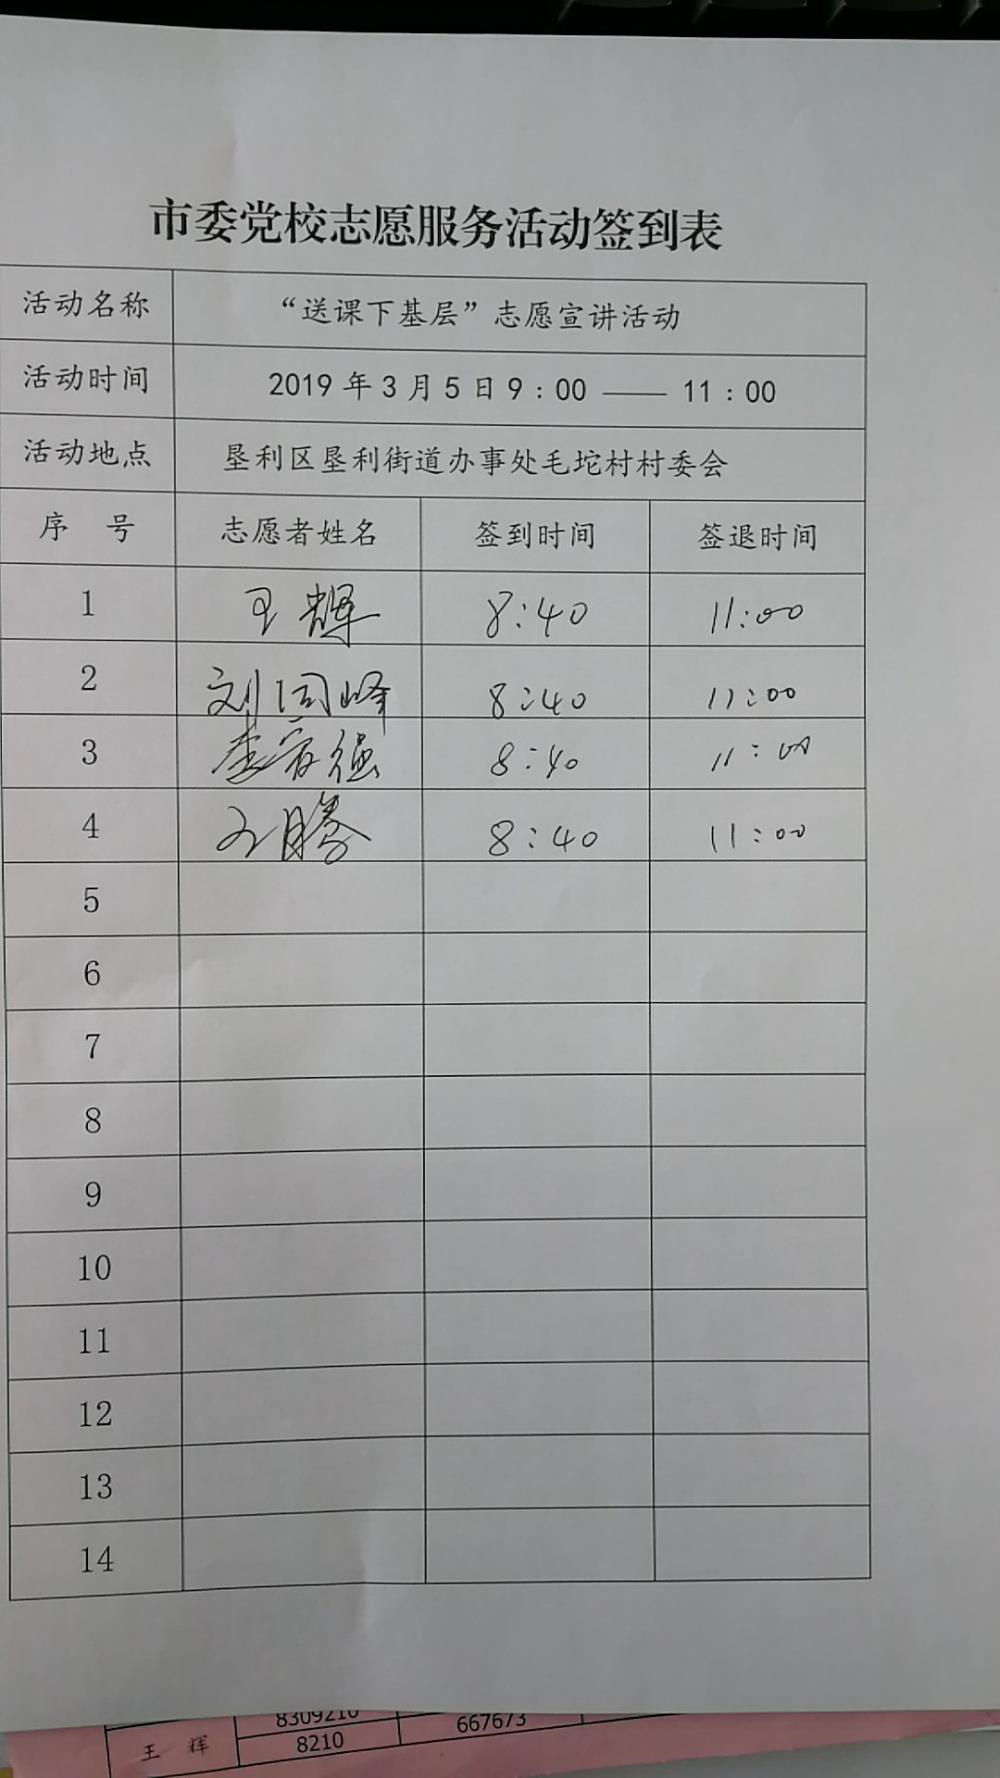 市委党校志愿服务活动签到表
活动名称 “送课下基层”志愿宣讲活动
活动时间 2019年3月5日9：00 —— 11：00
活动地点 垦利区垦利街道办事处毛坨村村委会
序 号 志愿者姓名 签到时间 签退时间
1 王辉 8:40 11:00
2 刘同峰 8:40 11:00
3 李富强 8:40 11:00
4 王腾 8:40 11:00
5
6
7
8
9
10
11
12
13
14
8309210
王 辉 8210 667673